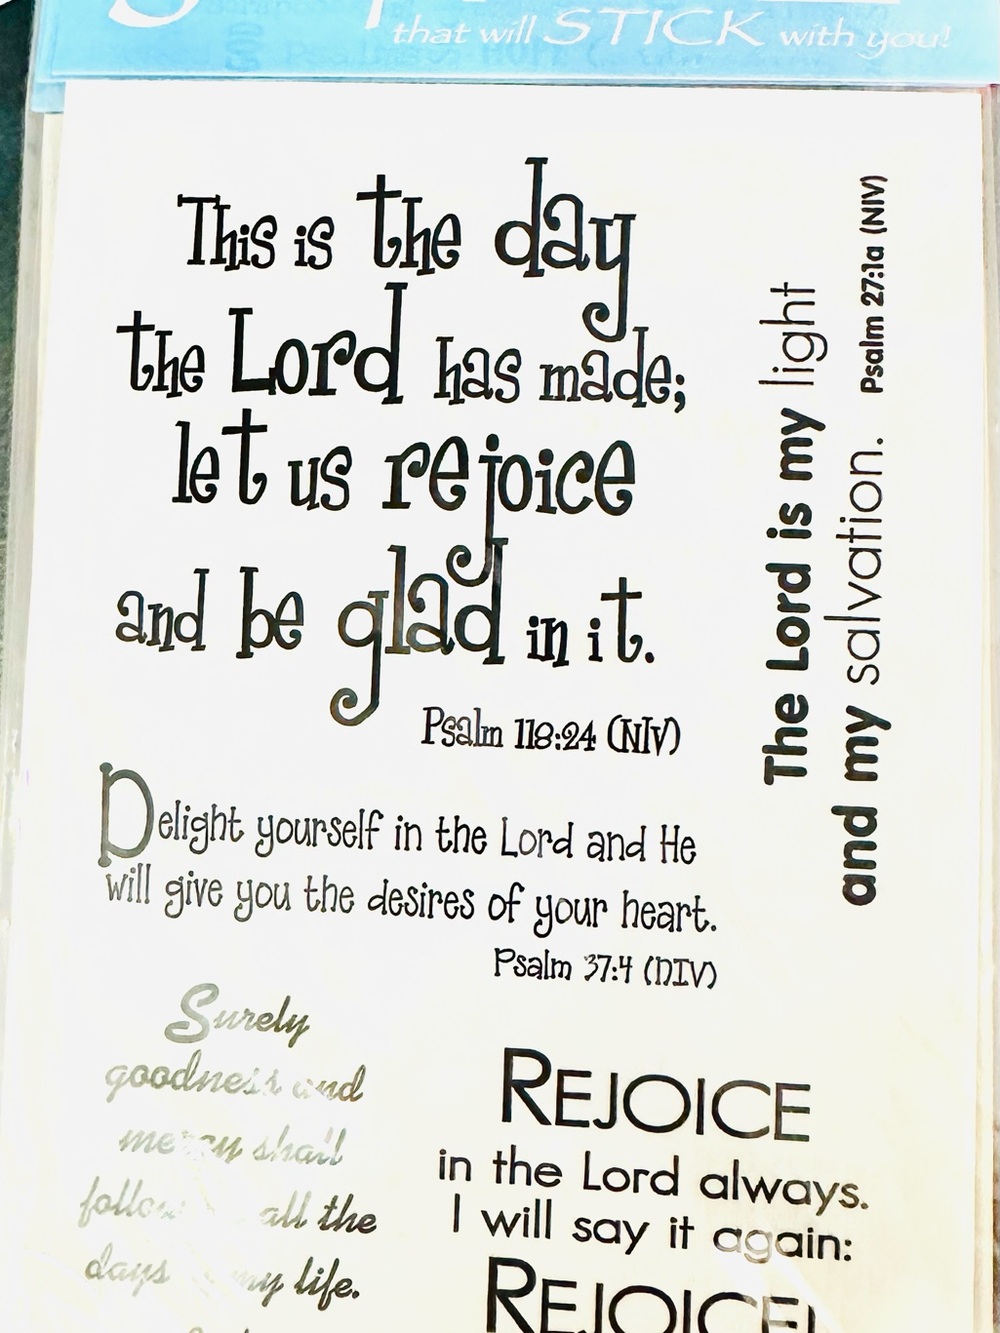 that will STICK with you!
This is the day
the Lord has made;
let us rejoice
and be glad in it.
Psalm 118:24 (NIV)
The Lord is my light
and my salvation. Psalm 27:1a (NIV)
Delight yourself in the Lord and He
will give you the desires of your heart.
Psalm 37:4 (NIV)
Surely
goodness and
mercy shall
follow all the
days my life.
REJOICE
in the Lord always.
I will say it again:
REJOICE!